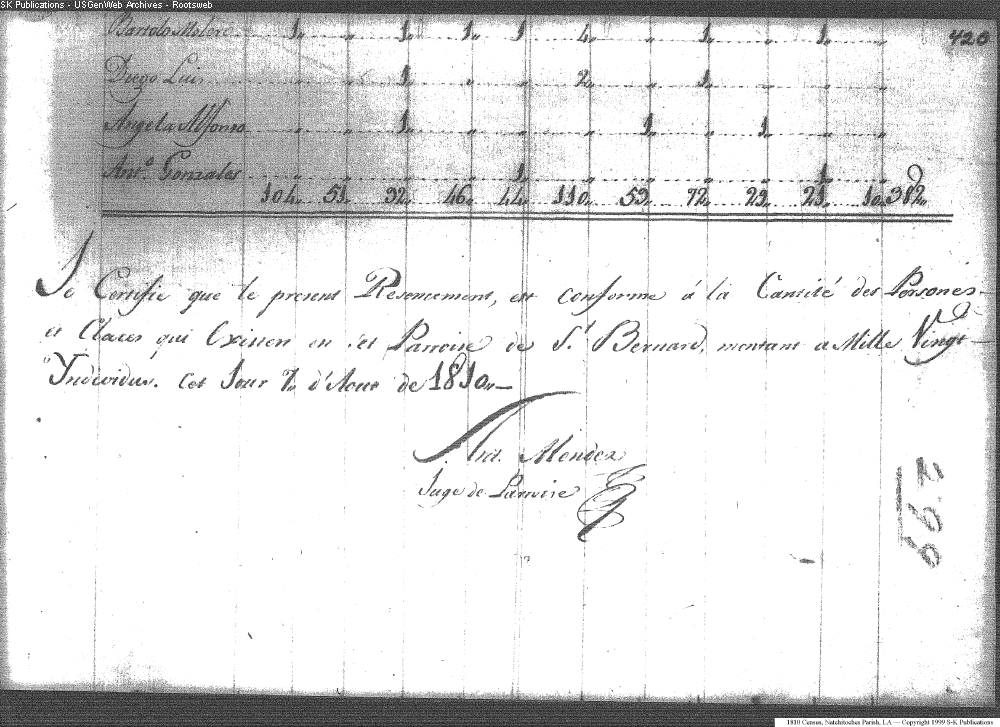 SK Publications - USGenWeb Archives - Rootsweb
420
Bartolo Molero 1 „ 1 1 1 4 „ 1 „ 1 „
Diego Luis „ „ 1 „ „ 2 „ 1 „ „ „
Angela Alfonso „ „ 1 „ „ „ 1 „ 1 „ „
Anto. Gonzales „ „ „ „ 1 „ „ „ „ 1 „
104 „ 51 „ 92 „ 46 „ 44 „ 110 „ 53 „ 72 „ 29 „ 21 „ 10 „ 382 „
Je Certifie que le present Resencement, est conforme á la Cantité des Persones
et Claces qui Existen en cet Parroise de St. Bernard, montant a Mille Vingt
Yndividus. Cet Jour 7 „ d'Aout de 1810 „
Ant. Mendez
Juge de Parroise
662
1810 Census, Natchitoches Parish, LA — Copyright 1999 S-K Publications